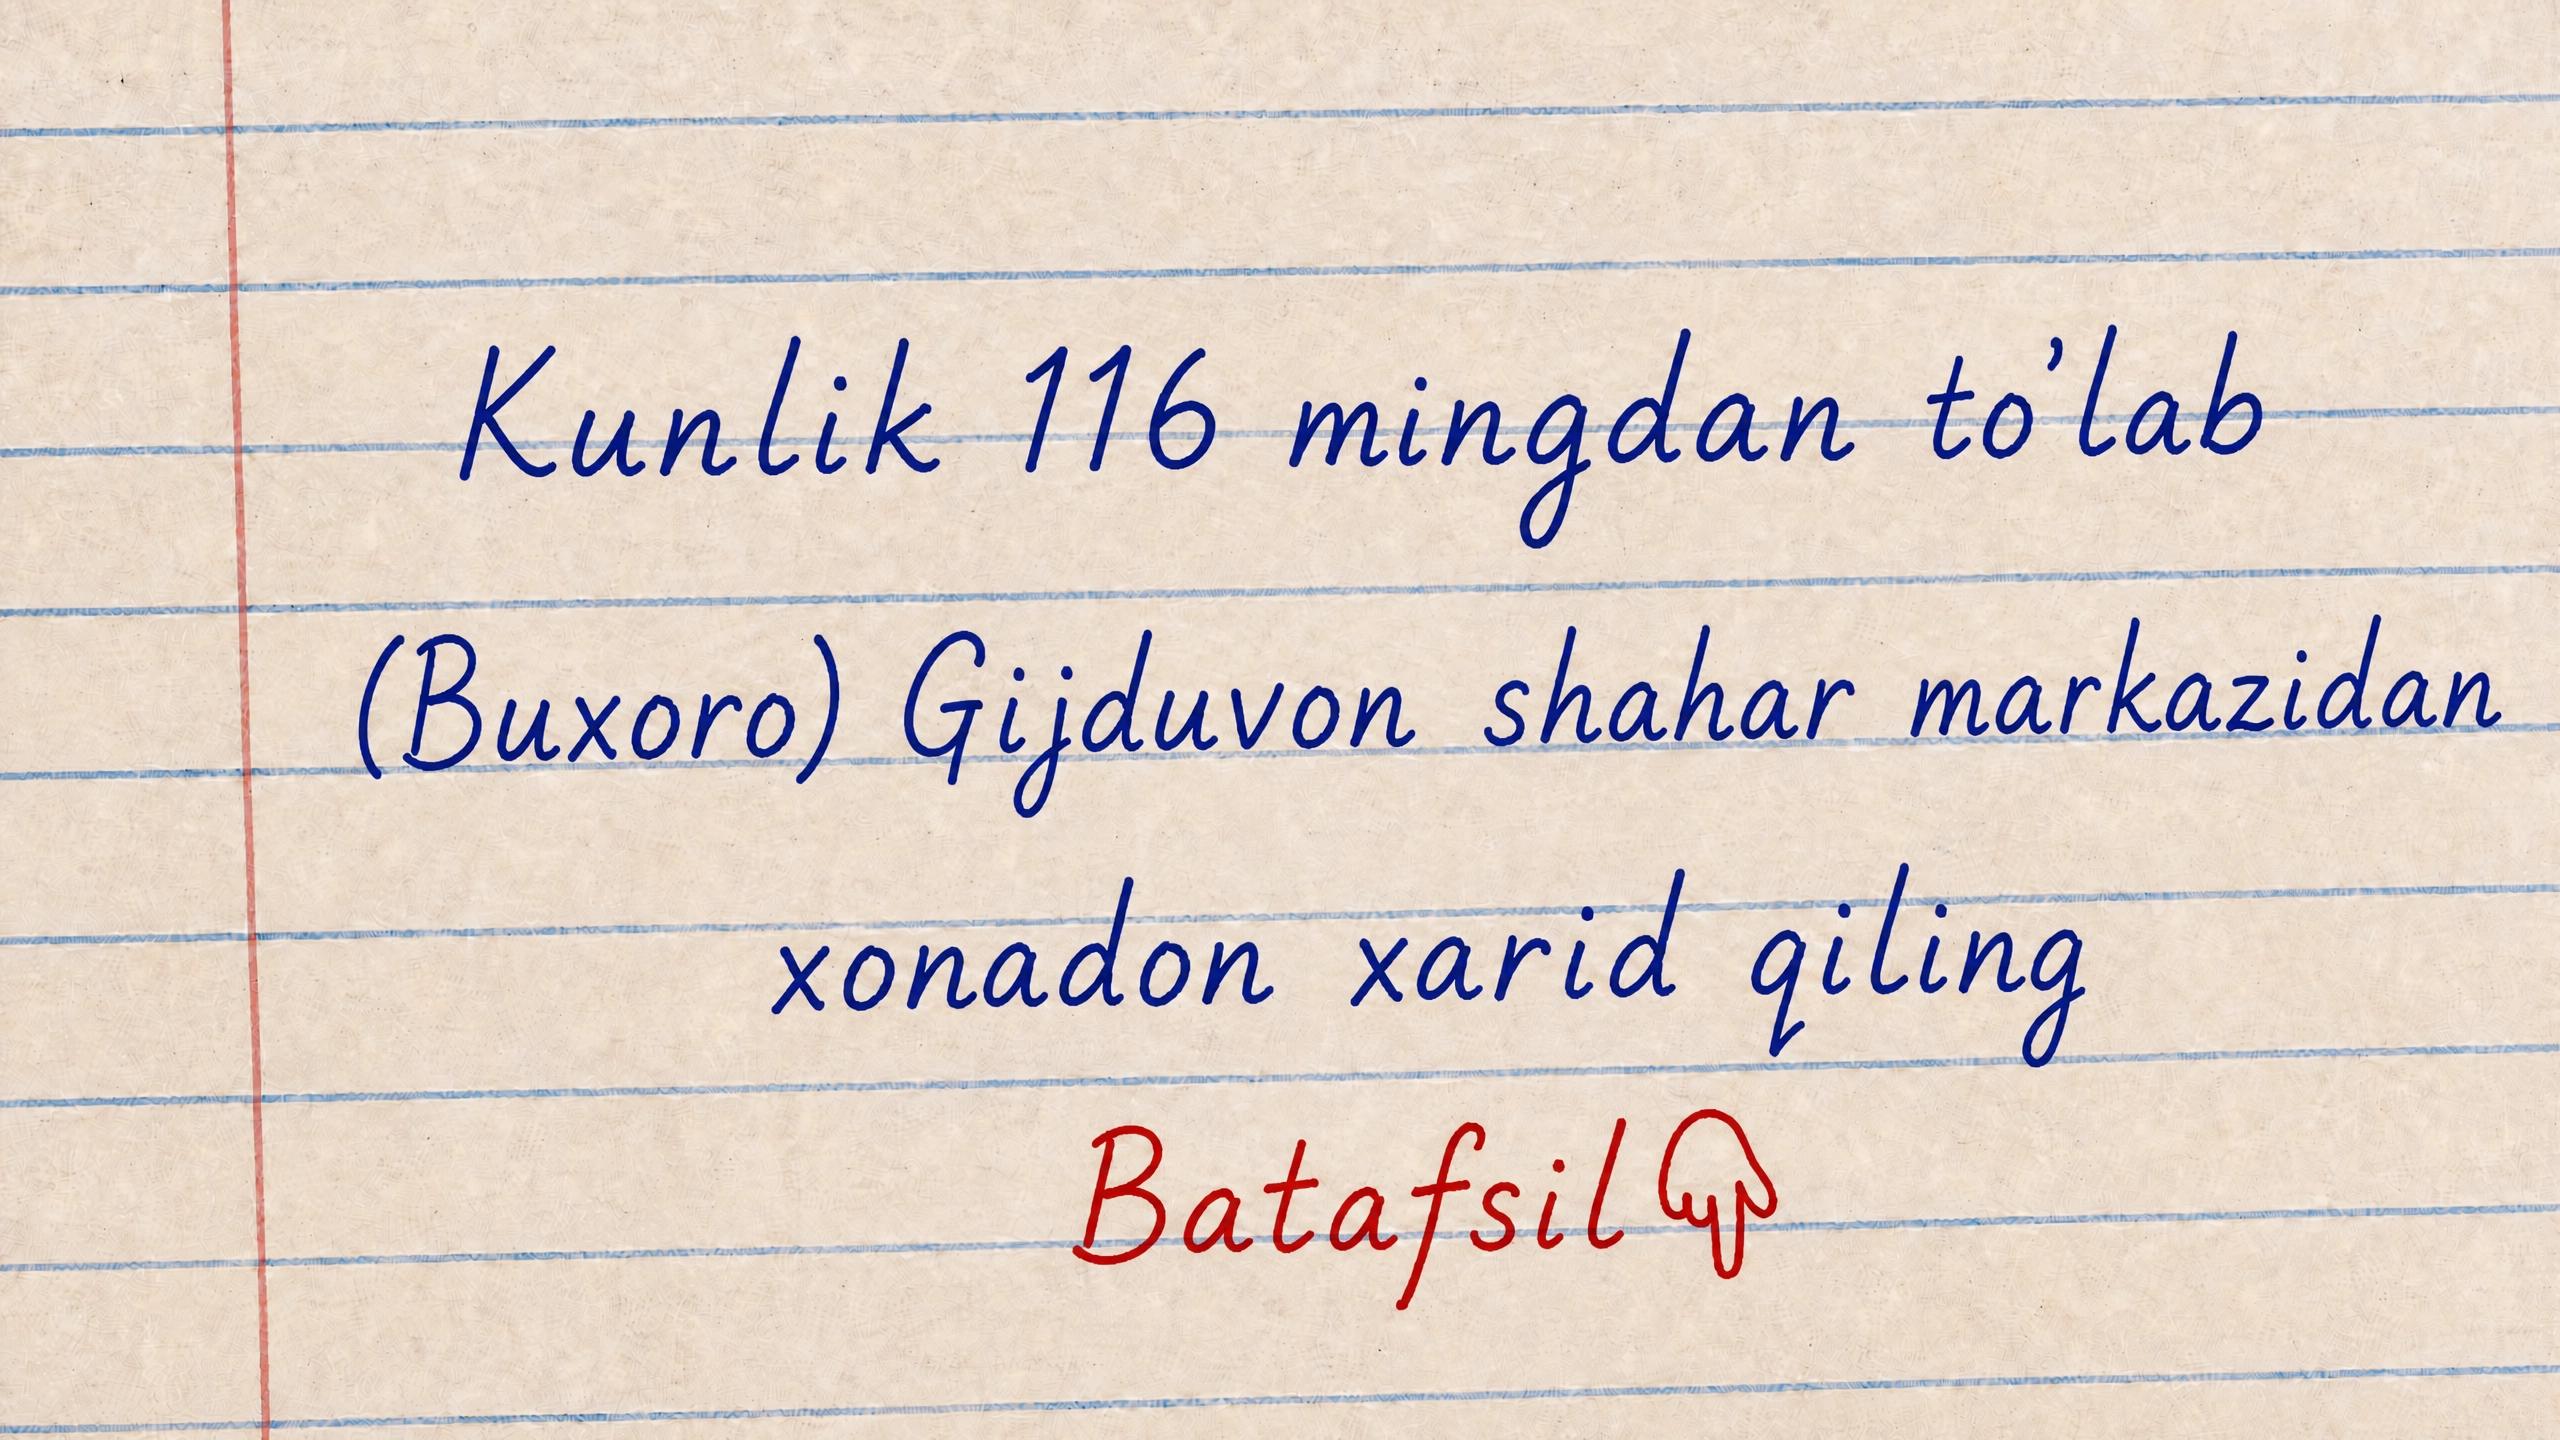 Kunlik 116 mingdan to’lab
(Buxoro) Gijduvon shahar markazidan
xonadon xarid qiling
Batafsil